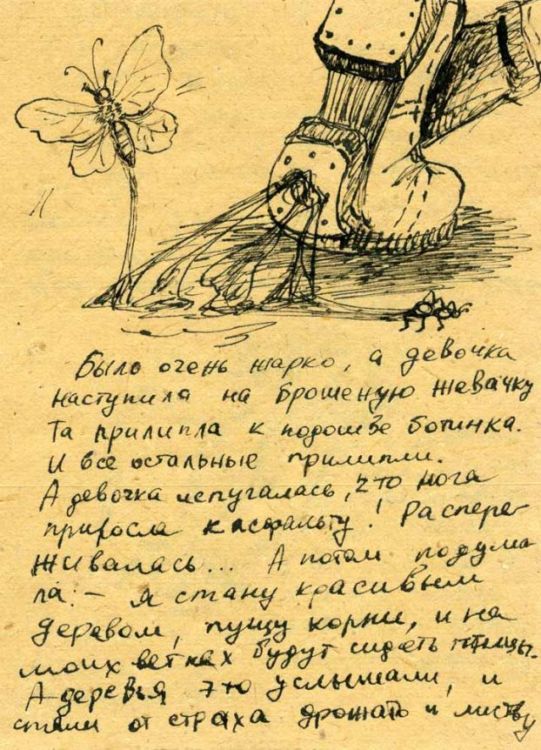 Было очень жарко, а девочка
наступила на брошеную жевачку
Та прилипла к подошве ботинка.
И все остальные прилипли.
А девочка испугалась, что нога
приросла к асфальту! Распере-
живалась... А потом подума
ла: - я стану красивым
деревом, пущу корни, и на
моих ветках будут сидеть птицы.
А деревья это услышали, и
стали от страха дрожать и листву